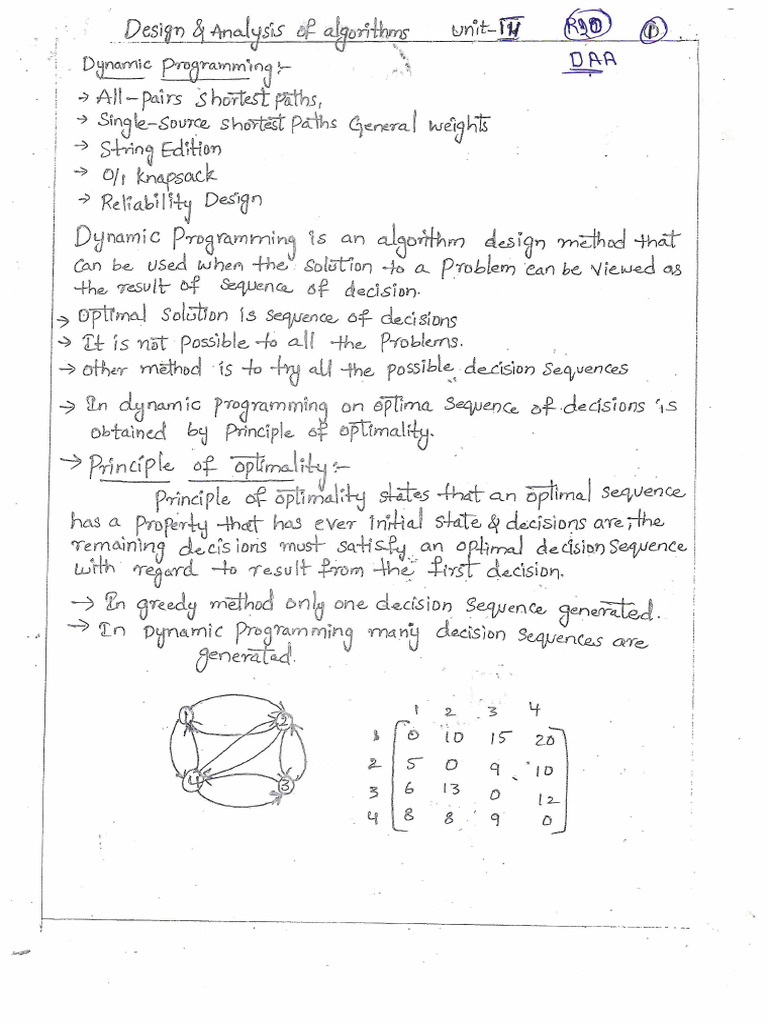 Design & Analysis of algorithms unit-IV R20 1
DAA
Dynamic Programming:-
→ All-Pairs Shortest Paths,
→ Single-Source Shortest Paths General Weights
→ String Edition
→ 0/1 Knapsack
→ Reliability Design
Dynamic Programming is an algorithm design method that
Can be used when the Solution to a Problem can be viewed as
the result of sequence of decision.
→ Optimal Solution is sequence of decisions
→ It is not possible to all the Problems.
→ other method is to try all the possible decision sequences
→ In dynamic programming on optima sequence of decisions is
obtained by Principle of optimality.
→ Principle of optimality:-
Principle of optimality states that an optimal sequence
has a Property that has ever initial state & decisions are, the
remaining decisions must satisfy an optimal decision sequence
with regard to result from the first decision.
→ In greedy method only one decision sequence generated.
→ In Dynamic Programming many decision sequences are
generated.
1 2
4 3
1 2 3 4
1 0 10 15 20
2 5 0 9 10
3 6 13 0 12
4 8 8 9 0